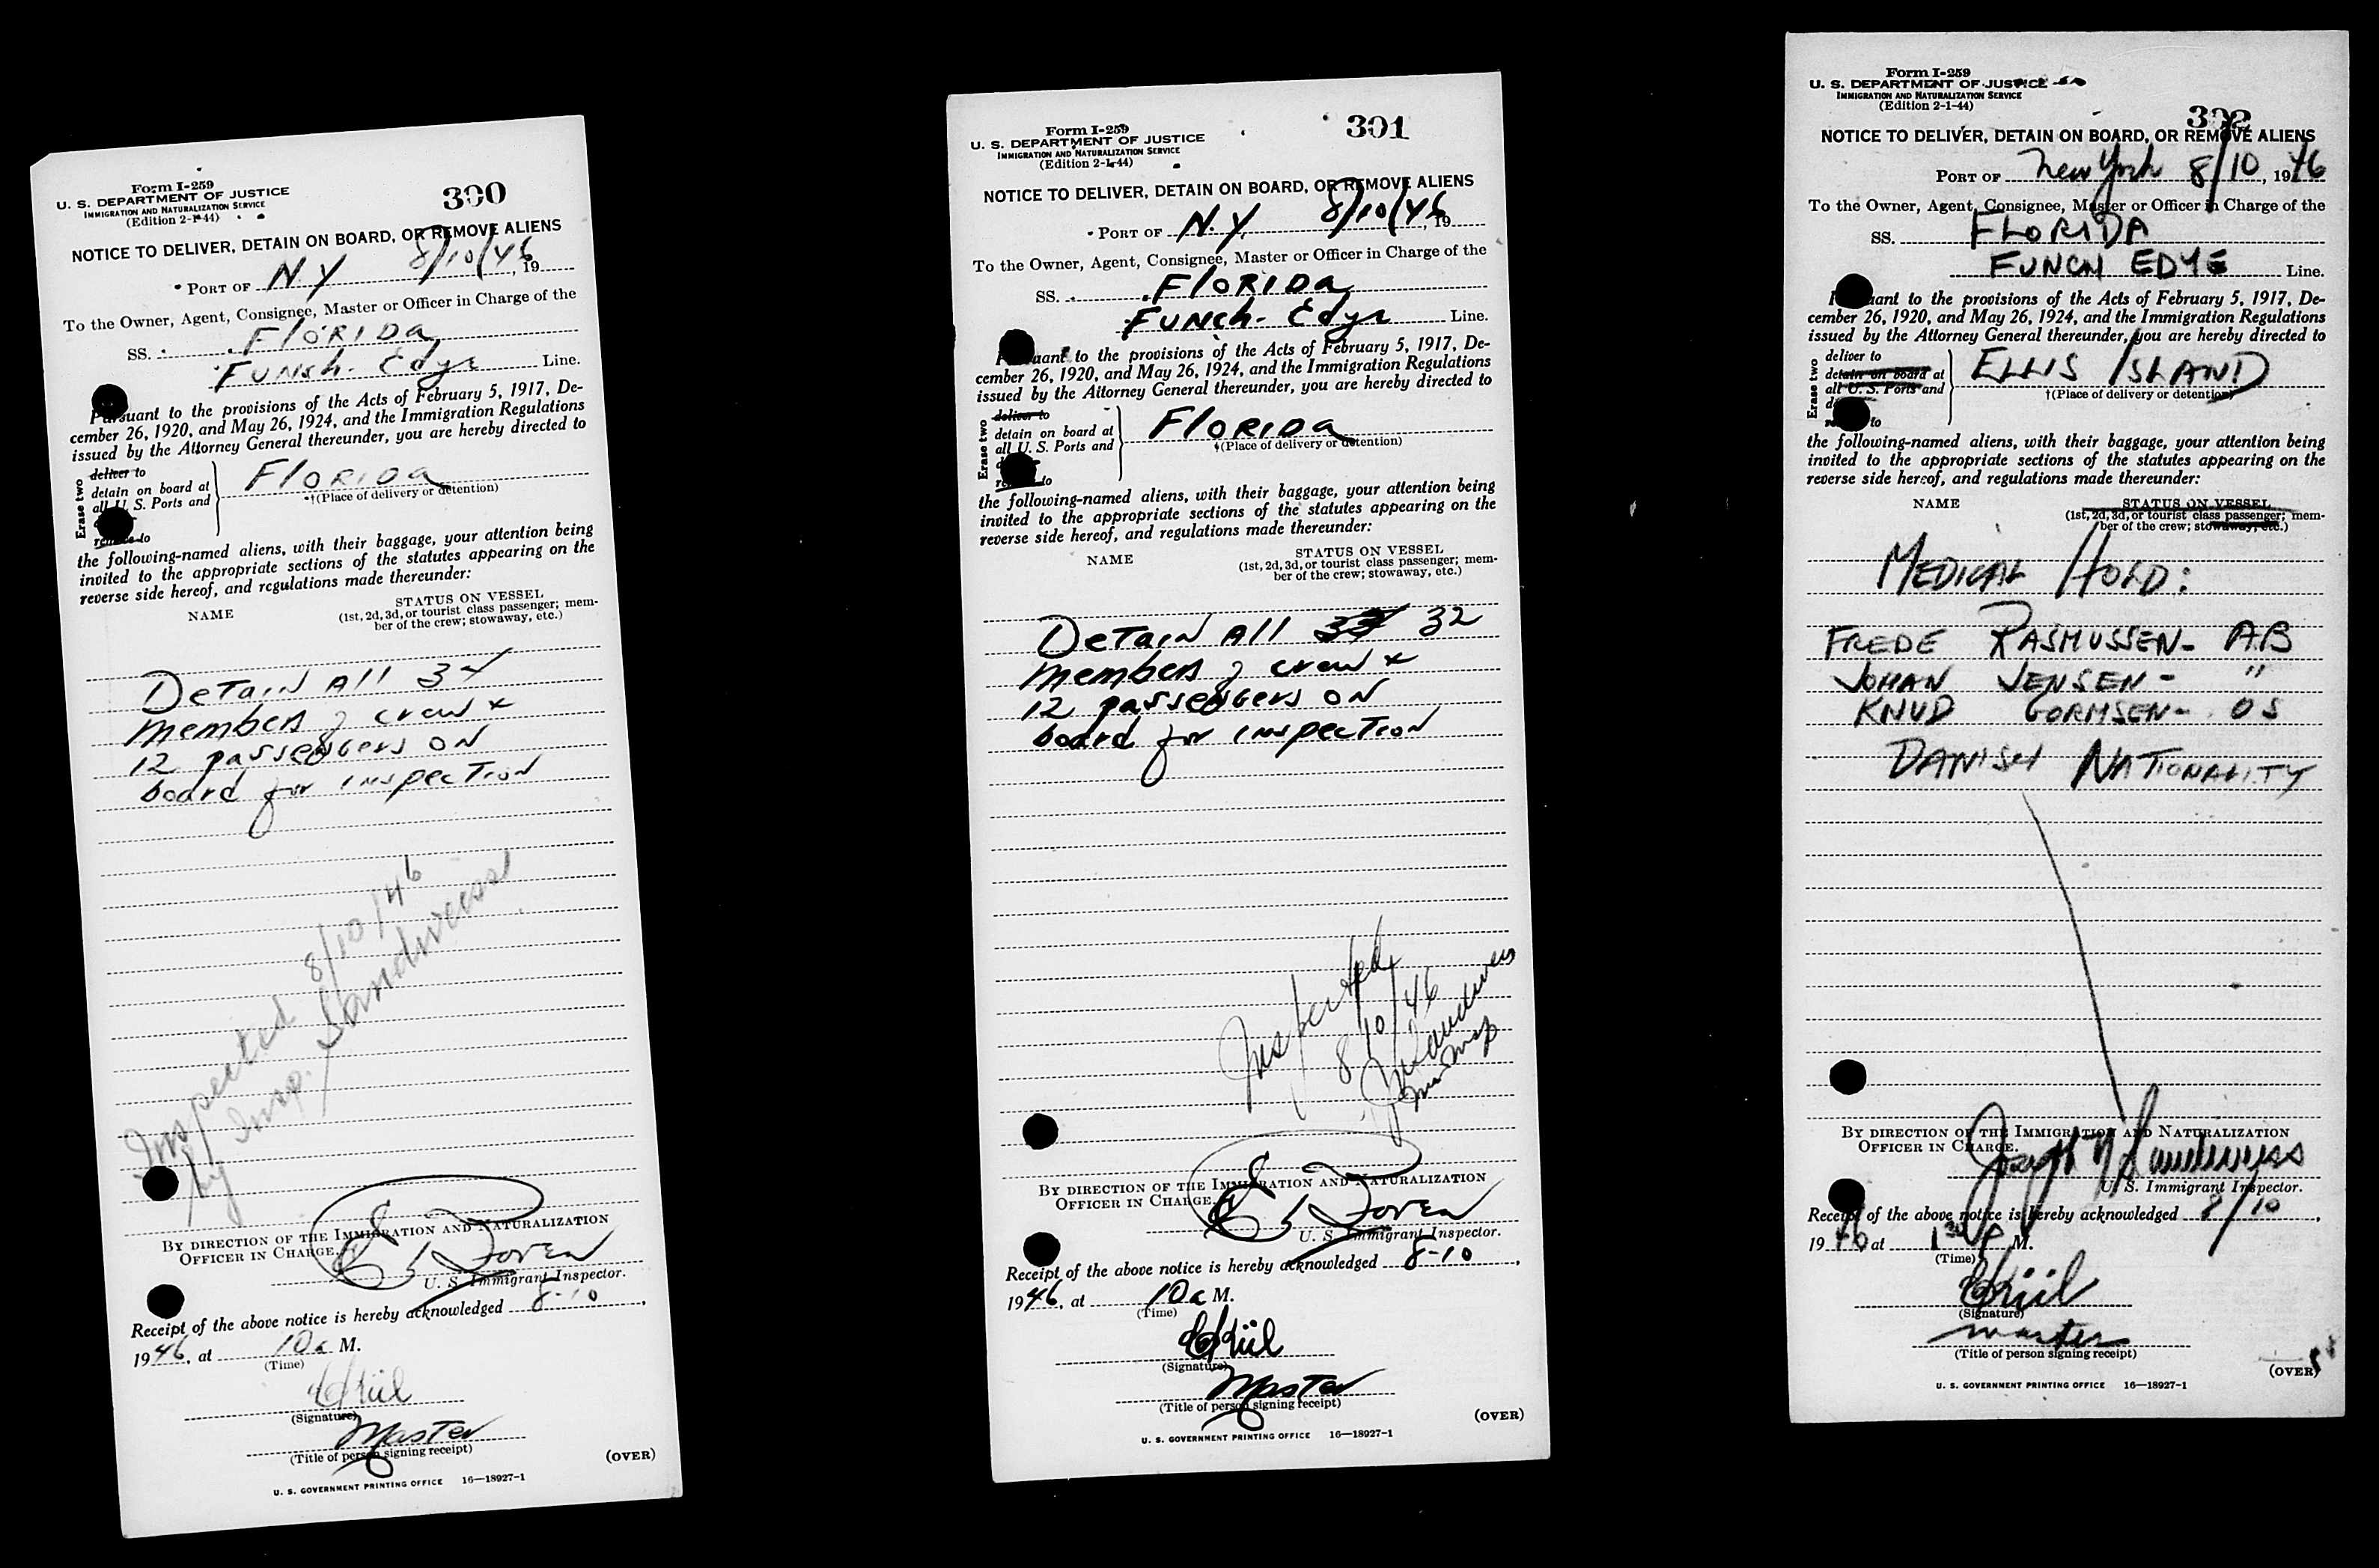 Form I-259
U. S. DEPARTMENT OF JUSTICE
IMMIGRATION AND NATURALIZATION SERVICE
(Edition 2-1-44)
300
NOTICE TO DELIVER, DETAIN ON BOARD, OR REMOVE ALIENS
PORT OF N.Y 8/10/46, 19
To the Owner, Agent, Consignee, Master or Officer in Charge of the
SS. FlORIDa
FUNch-Edye Line.
Pursuant to the provisions of the Acts of February 5, 1917, De-
cember 26, 1920, and May 26, 1924, and the Immigration Regulations
issued by the Attorney General thereunder, you are hereby directed to
Erase two
deliver to
detain on board at
all U. S. Ports and
remove to
FlORIDa
†(Place of delivery or detention)
the following-named aliens, with their baggage, your attention being
invited to the appropriate sections of the statutes appearing on the
reverse side hereof, and regulations made thereunder:
NAME
STATUS ON VESSEL
(1st, 2d, 3d, or tourist class passenger; mem-
ber of the crew; stowaway, etc.)
DeTain All
members of crew &
12 passengers ON
board for inspecTion
Inspected 8/10/46
by Insp. Sandweiss
BY DIRECTION OF THE IMMIGRATION AND NATURALIZATION
OFFICER IN CHARGE.
U. S. Immigrant Inspector.
Receipt of the above notice is hereby acknowledged 8-10,
1946, at 10a M.
(Time)
(Signature)
MasTer
(Title of person signing receipt)
(OVER)
U. S. GOVERNMENT PRINTING OFFICE 16—18927-1
Form I-259
U. S. DEPARTMENT OF JUSTICE
IMMIGRATION AND NATURALIZATION SERVICE
(Edition 2-1-44)
301
NOTICE TO DELIVER, DETAIN ON BOARD, OR REMOVE ALIENS
PORT OF N.Y. 8/10/46, 19
To the Owner, Agent, Consignee, Master or Officer in Charge of the
SS. FlORIDa
FUNch-Edye Line.
Pursuant to the provisions of the Acts of February 5, 1917, De-
cember 26, 1920, and May 26, 1924, and the Immigration Regulations
issued by the Attorney General thereunder, you are hereby directed to
Erase two
deliver to
detain on board at
all U. S. Ports and
remove to
FlORIDa
†(Place of delivery or detention)
the following-named aliens, with their baggage, your attention being
invited to the appropriate sections of the statutes appearing on the
reverse side hereof, and regulations made thereunder:
NAME
STATUS ON VESSEL
(1st, 2d, 3d, or tourist class passenger; mem-
ber of the crew; stowaway, etc.)
DeTain All 32
members of crew &
12 passengers ON
board for inspecTion
Inspected
8/10/46
BY DIRECTION OF THE IMMIGRATION AND NATURALIZATION
OFFICER IN CHARGE.
U. S. Immigrant Inspector.
Receipt of the above notice is hereby acknowledged 8-10,
1946, at 10a M.
(Time)
(Signature)
MasTer
(Title of person signing receipt)
(OVER)
U. S. GOVERNMENT PRINTING OFFICE 16—18927-1
Form I-259
U. S. DEPARTMENT OF JUSTICE
IMMIGRATION AND NATURALIZATION SERVICE
(Edition 2-1-44)
302
NOTICE TO DELIVER, DETAIN ON BOARD, OR REMOVE ALIENS
PORT OF New York 8/10, 1946
To the Owner, Agent, Consignee, Master or Officer in Charge of the
SS. FLORIDA
FUNCH EDYE Line.
Pursuant to the provisions of the Acts of February 5, 1917, De-
cember 26, 1920, and May 26, 1924, and the Immigration Regulations
issued by the Attorney General thereunder, you are hereby directed to
Erase two
deliver to
detain on board at
all U. S. Ports and
to
ELLIS ISLAND
†(Place of delivery or detention)
the following-named aliens, with their baggage, your attention being
invited to the appropriate sections of the statutes appearing on the
reverse side hereof, and regulations made thereunder:
NAME
STATUS ON VESSEL
(1st, 2d, 3d, or tourist class passenger; mem-
ber of the crew; stowaway, etc.)
MEDICAL HOLD:
FREDE RASMUSSEN- AB
JOHAN JENSEN- "
KNUD GORMSEN- OS
DANISH NATIONALITY
BY DIRECTION OF THE IMMIGRATION AND NATURALIZATION
OFFICER IN CHARGE.
Joseph Sandweiss
U. S. Immigrant Inspector.
Receipt of the above notice is hereby acknowledged 8/10,
1946, at 1 30 P M.
(Time)
(Signature)
master
(Title of person signing receipt)
(OVER)
U. S. GOVERNMENT PRINTING OFFICE 16—18927-1